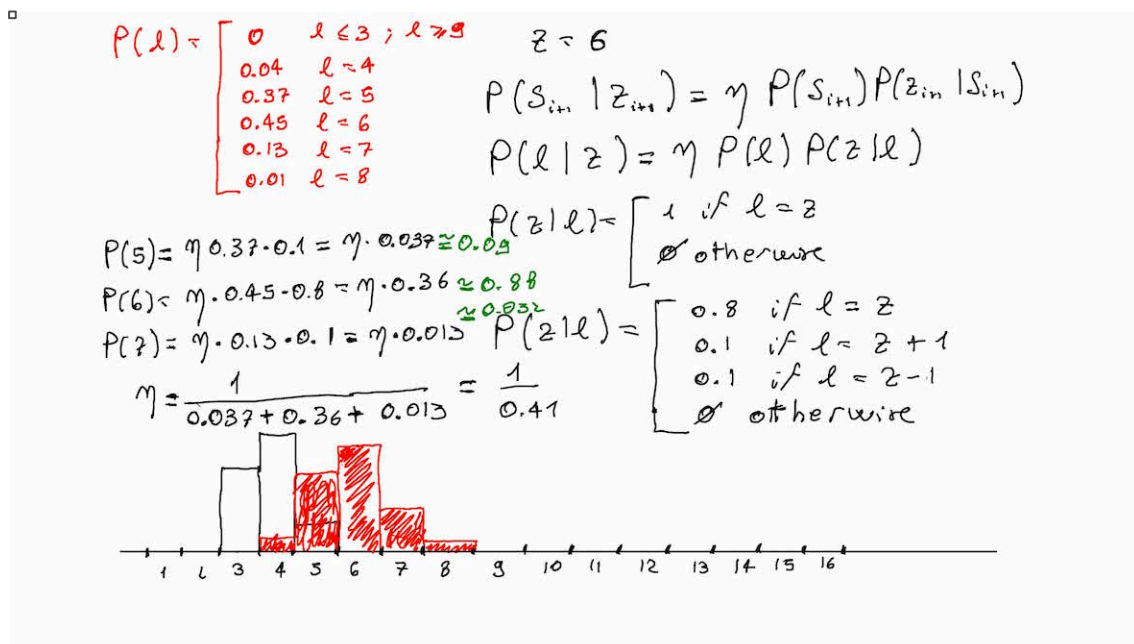 P(l) = [ 0 l ≤ 3 ; l ≥ 9
0.04 l = 4
0.37 l = 5
0.45 l = 6
0.13 l = 7
0.01 l = 8
z = 6
P(S_{i+1} | Z_{i+1}) = η P(S_{i+1}) P(z_{i+1} | S_{i+1})
P(l | z) = η P(l) P(z | l)
P(z | l) = [ 1 if l = z
∅ otherwise
P(5) = η 0.37 · 0.1 = η · 0.037 ≅ 0.09
P(6) = η · 0.45 · 0.8 = η · 0.36 ≃ 0.88
P(7) = η · 0.13 · 0.1 = η · 0.013 ≃ 0.032
η = 1 / (0.037 + 0.36 + 0.013) = 1 / 0.41
P(z | l) = [ 0.8 if l = z
0.1 if l = z + 1
0.1 if l = z - 1
∅ otherwise
1 2 3 4 5 6 7 8 9 10 11 12 13 14 15 16